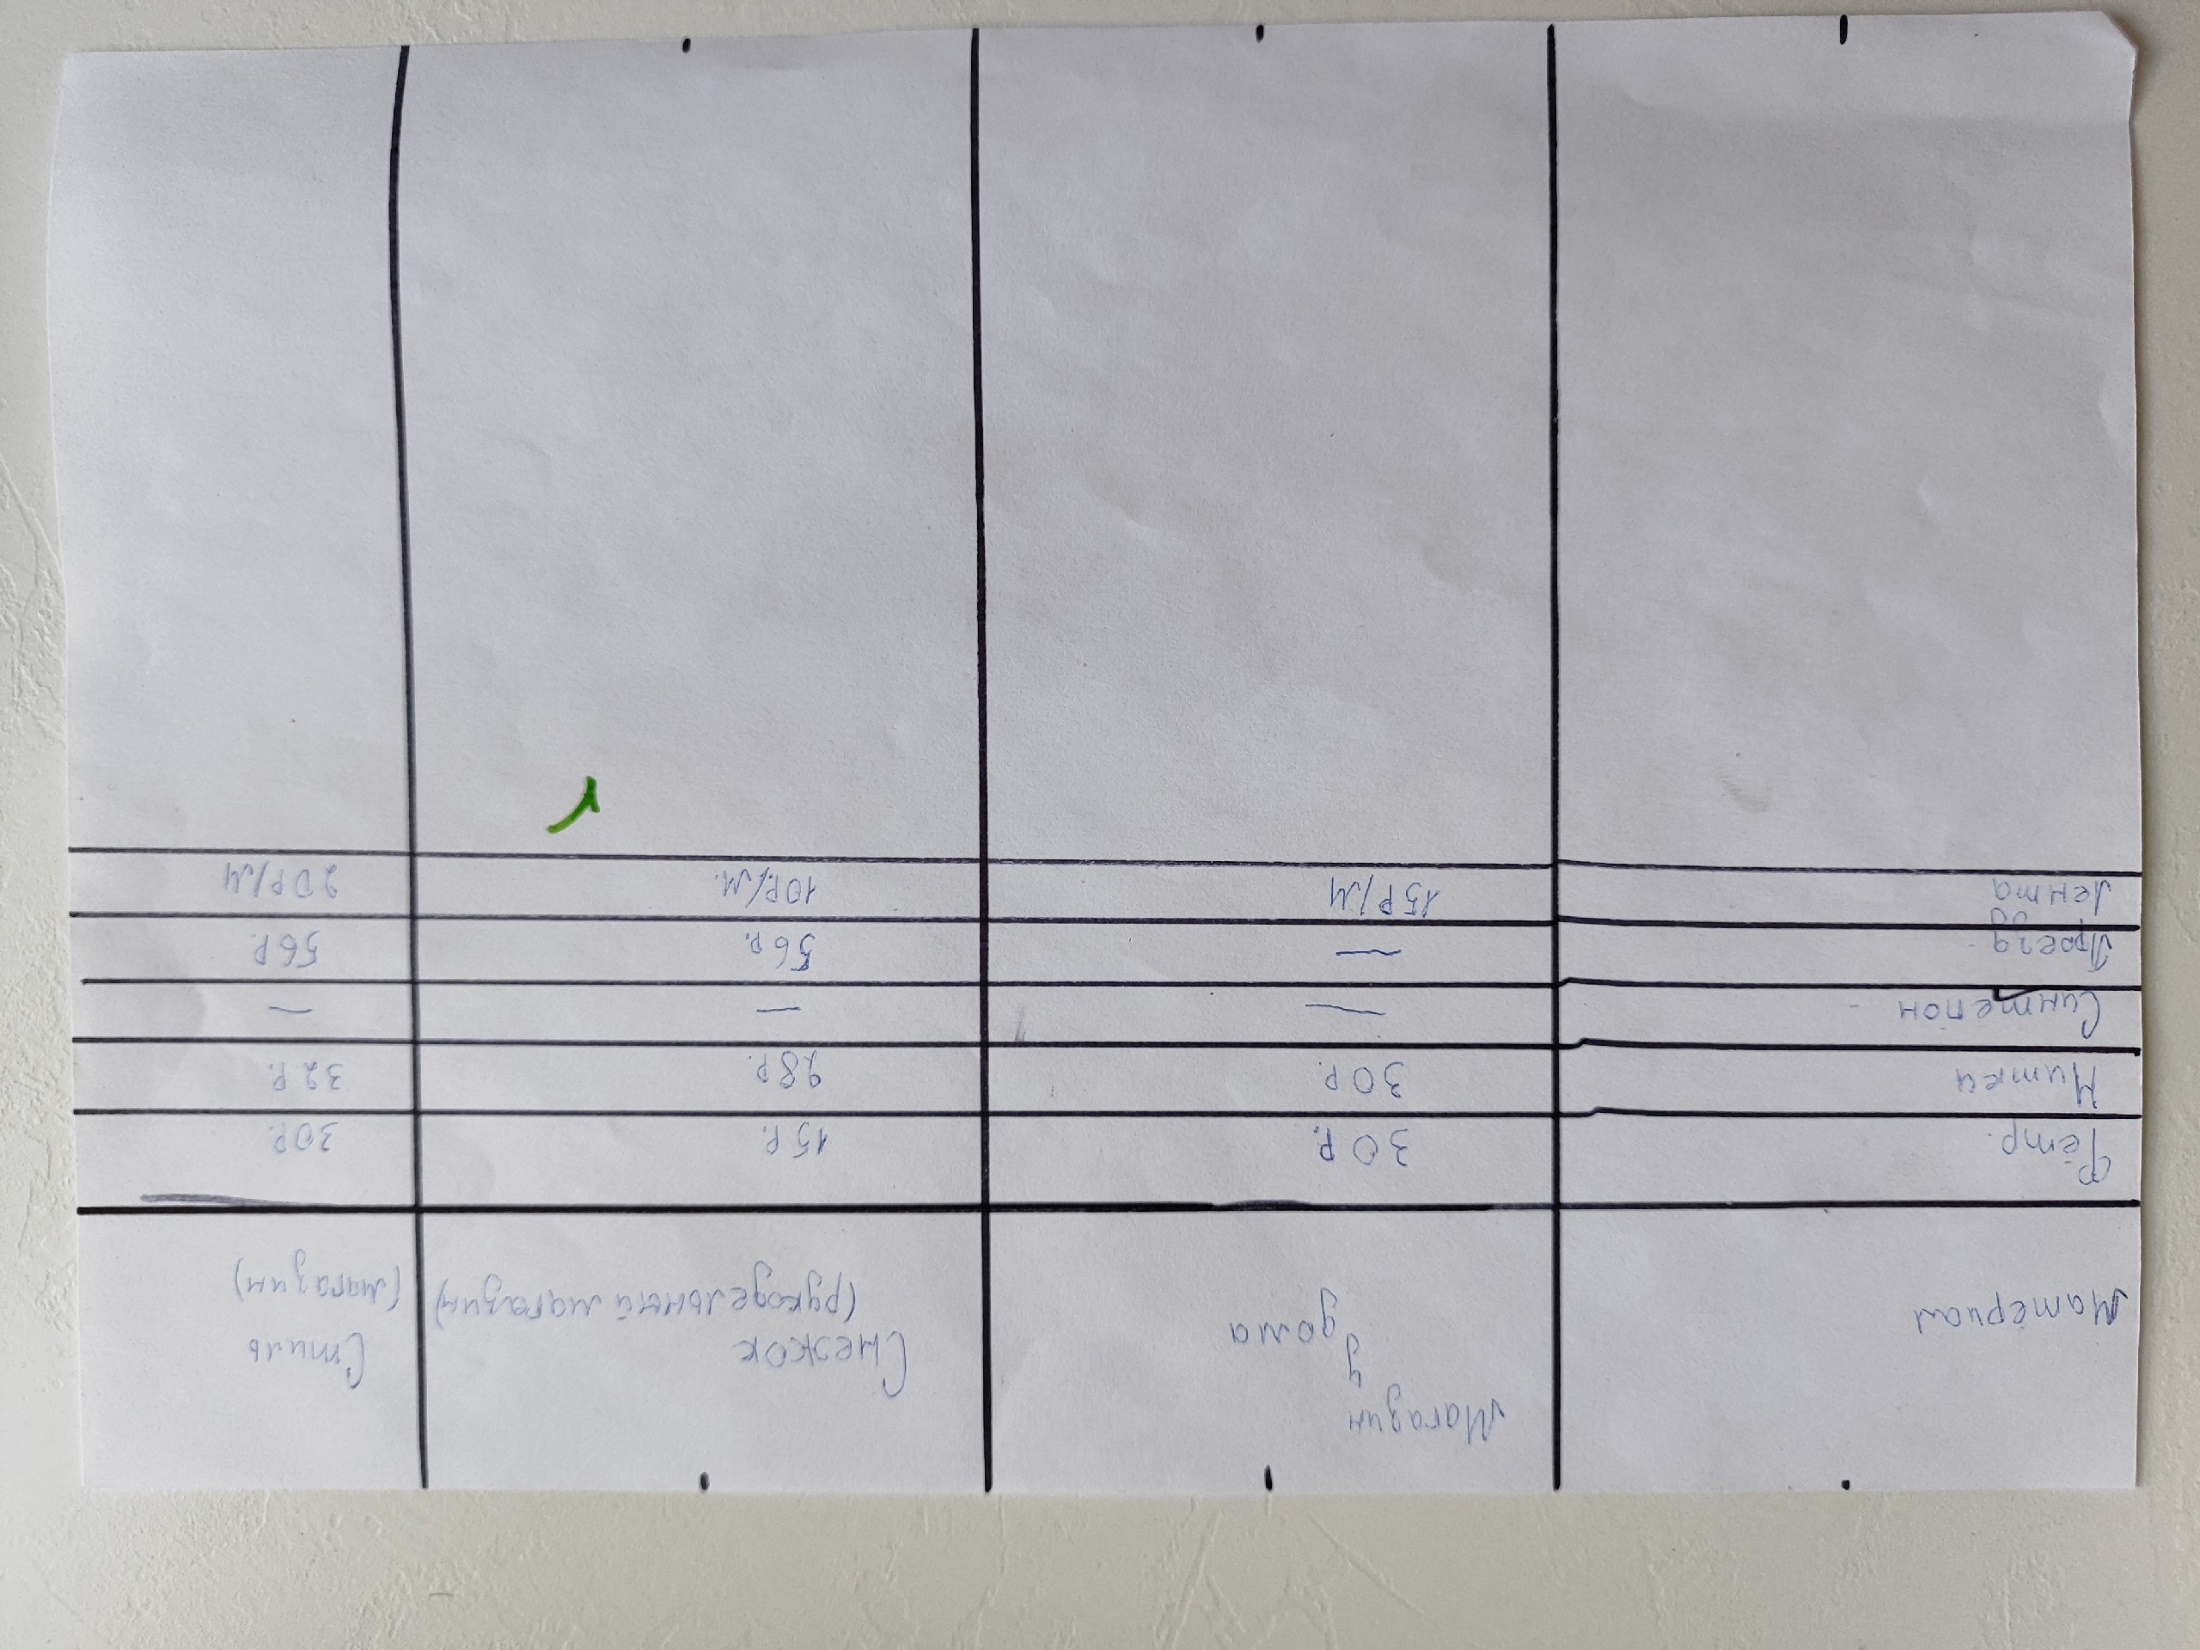 Материал Магазин у дома Снежок (рукодельный магазин) Стиль (магазин)
Фетр. 30 р. 15 р. 30 р.
Нитки 30 р. 28 р. 32 р.
Синтепон — — —
Проезд — 56 р. 56 р.
Лента 15 р/м 10 р./м. 20 р/м